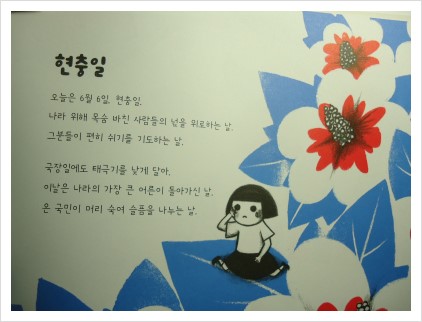 현충일
오늘은 6월 6일, 현충일.
나라 위해 목숨 바친 사람들의 넋을 위로하는 날.
그분들이 편히 쉬기를 기도하는 날.
국장일에도 태극기를 낮게 달아.
이날은 나라의 가장 큰 어른이 돌아가신 날.
온 국민이 머리 숙여 슬픔을 나누는 날.